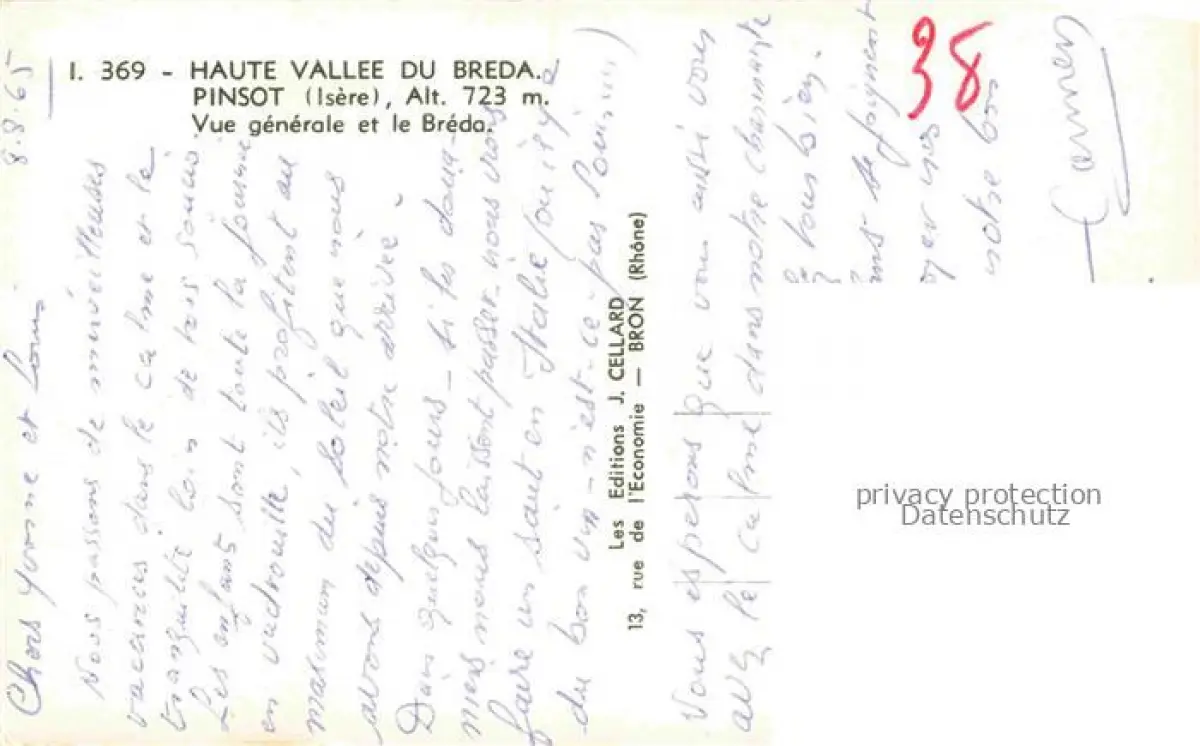 I. 369 - HAUTE VALLEE DU BREDA.
PINSOT (Isère), Alt. 723 m.
Vue générale et le Bréda.
8.8.65
Chers Yvonne et Louis
Nous passons de merveilleuses
vacances dans le calme et la
tranquilité loin de tous soucis.
Les enfants sont toute la journée
en vadrouille, ils profitent au
maximum du soleil que nous
avons depuis notre arrivée
Dans quelques jours - si les doua-
niers nous laissent passer - nous irons
faire un saut en Italie (où il y a
du bon vin - n'est-ce-pas Louis)
Les Editions J. CELLARD
13, rue de l'Economie — BRON (Rhône)
Vous esperons que vous aussi vous
avez le calme dans notre charmante
tous bien.
se joignent
notre bon
Carmen
38
privacy protection
Datenschutz